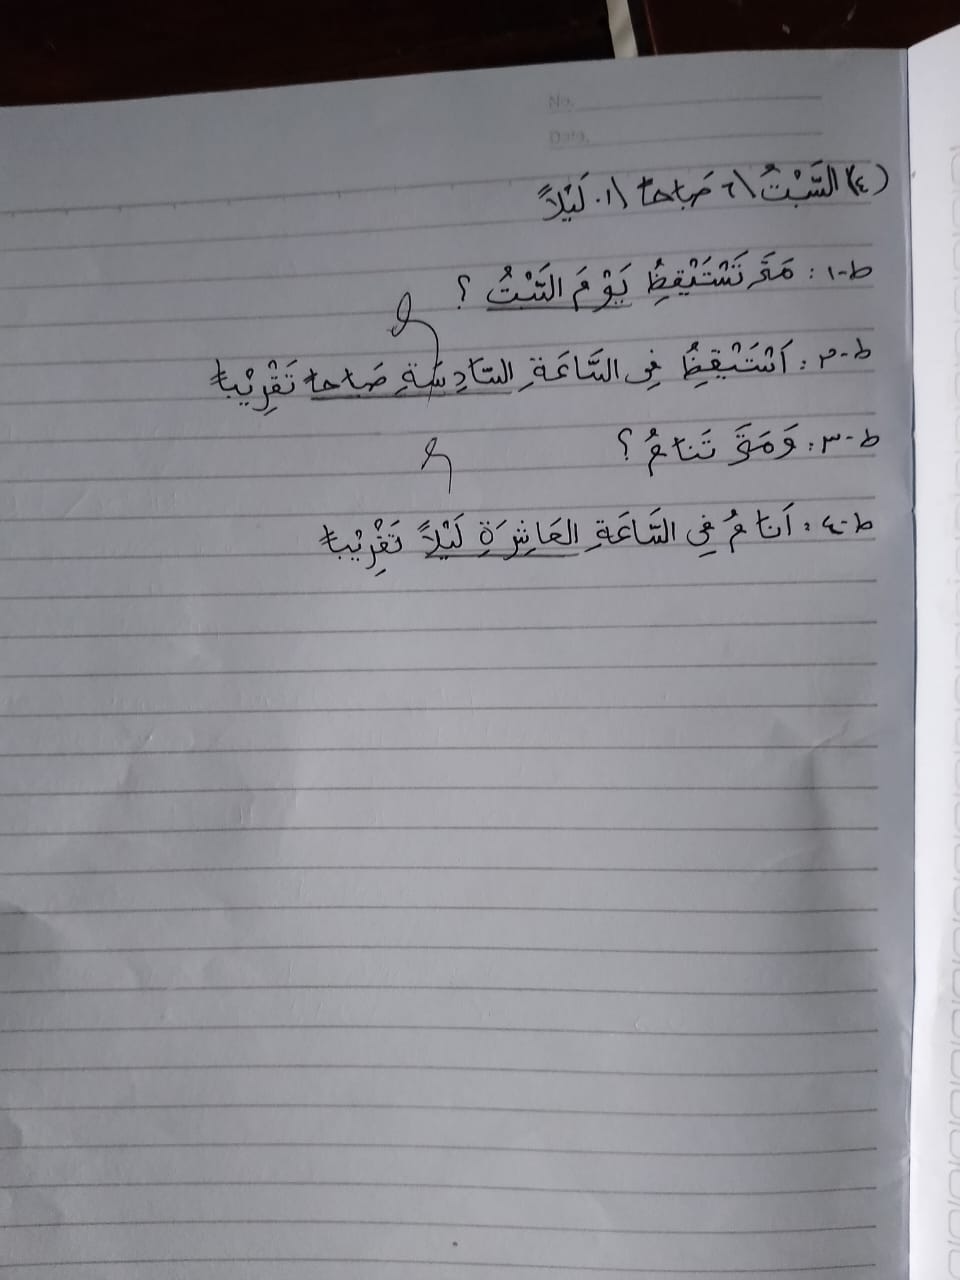 No.
Date.
(٤) السَّبْتُ \ ٦ صَبَاحًا \ ١٠ لَيْلًا
ط-١ : مَتَى تَسْتَيْقِظُ يَوْمَ السَّبْتُ ؟
ط-٢ : اَسْتَيْقِظُ فِى السَّاعَةِ السَّادِسَةِ صَبَاحًا تَقْرِيْبًا
ط-٣ : وَمَتَى تَنَامُ ؟
ط-٤ : اَنَامُ فِى السَّاعَةِ العَاشِرَةِ لَيْلًا تَقْرِيْبًا